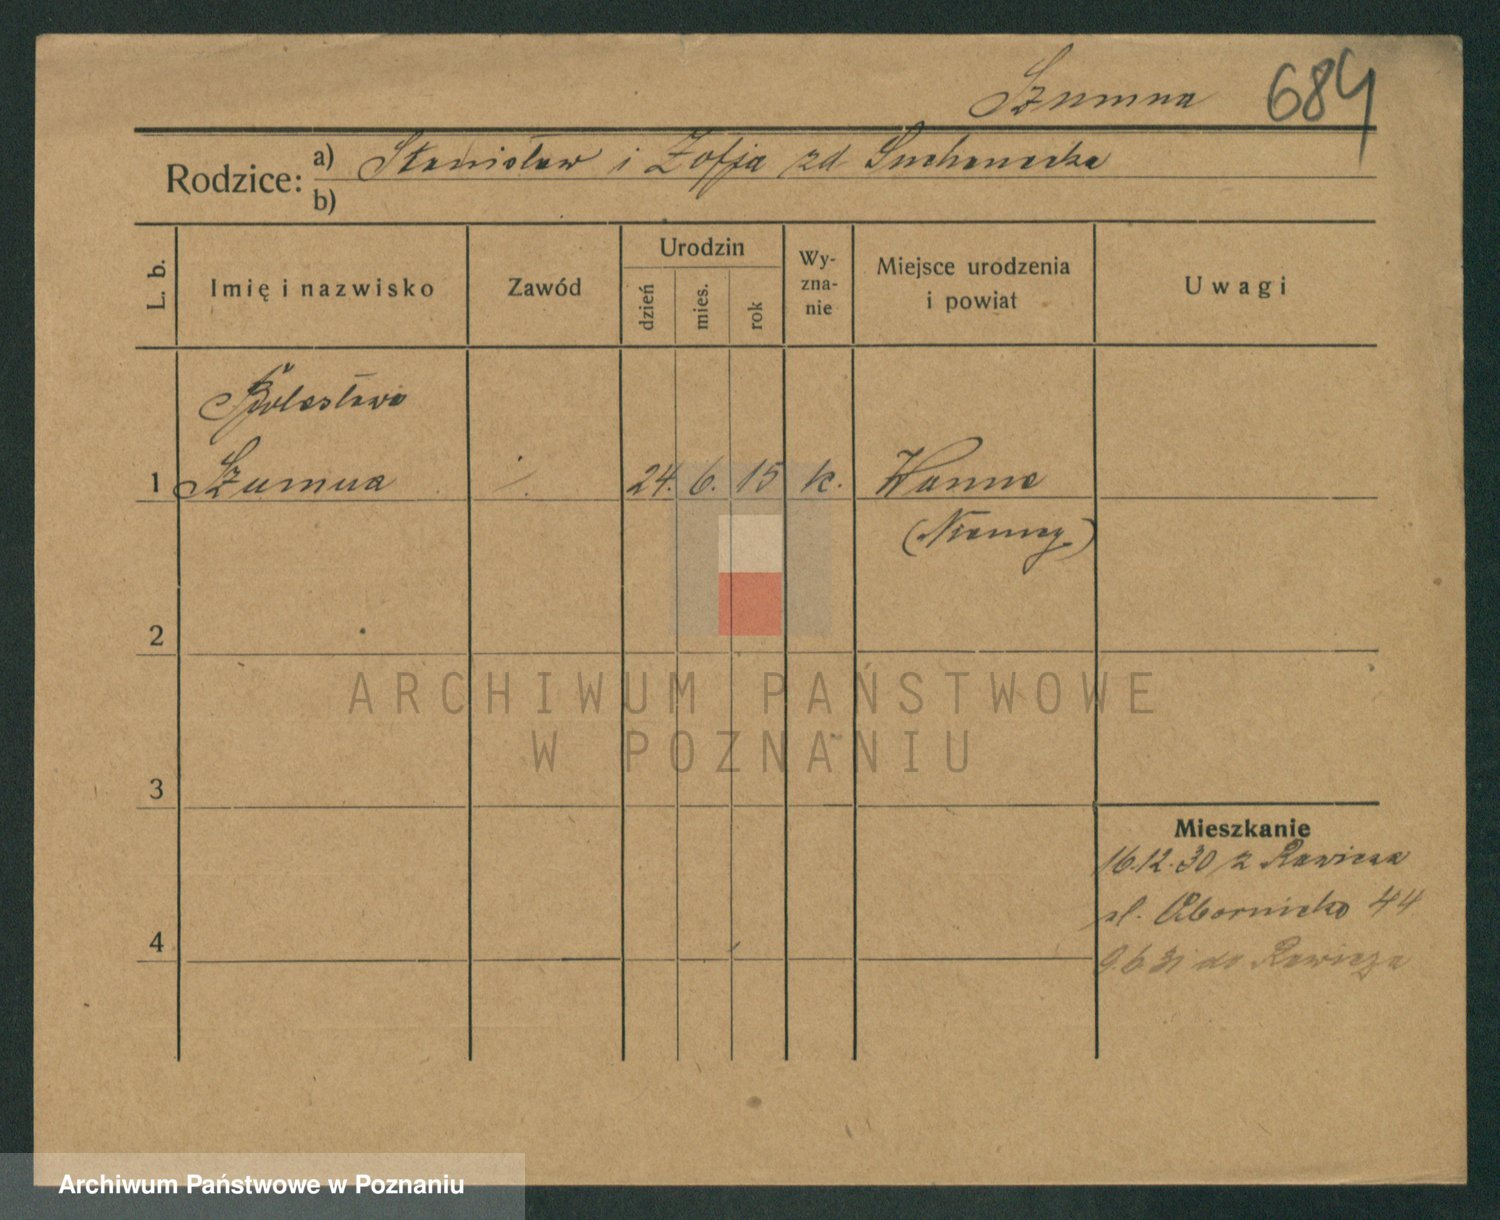 Szumna 684
Rodzice: a) Stanisław i Zofja zd Suchanecka
b)
L. b. Imię i nazwisko Zawód Urodzin dzień mies. rok Wy-zna-nie Miejsce urodzenia i powiat Uwagi
Bolesława
1 Szumna ·/. 24. 6. 15 k. Wanne
(Niemcy)
2
ARCHIWUM PAŃSTWOWE
W POZNANIU
3
Mieszkanie
16.12.30 z Rawicza
ul. Obornicka 44
4
9.6 31 do Rawicza
Archiwum Państwowe w Poznaniu